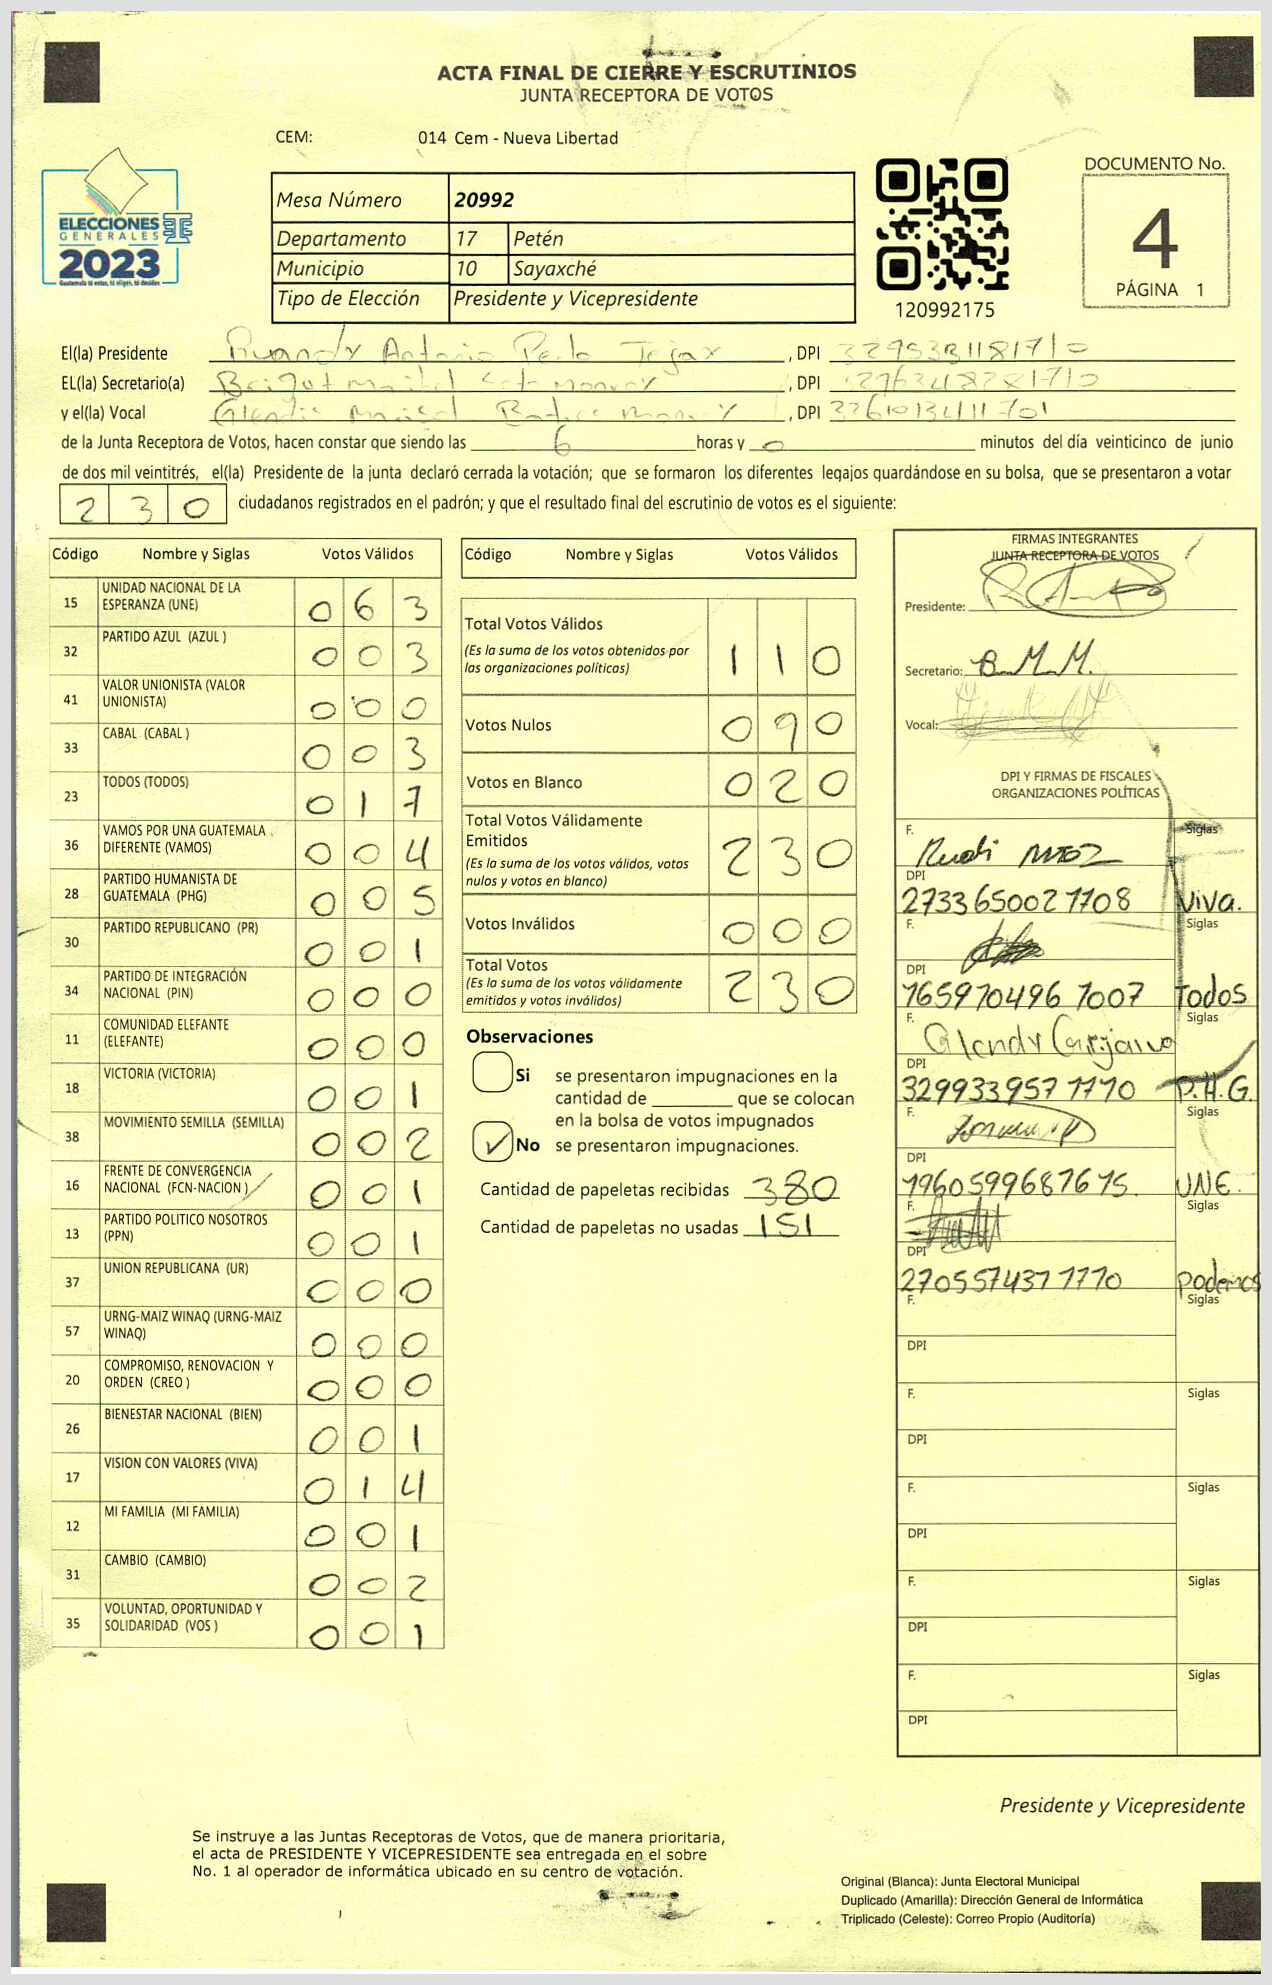 ACTA FINAL DE CIERRE Y ESCRUTINIOS
JUNTA RECEPTORA DE VOTOS
CEM: 014 Cem - Nueva Libertad
ELECCIONES
GENERALES
2023
Guatemala tú votas, tú eliges, tú decides
Mesa Número 20992
Departamento 17 Petén
Municipio 10 Sayaxché
Tipo de Elección Presidente y Vicepresidente
120992175
DOCUMENTO No.
4
PÁGINA 1
El(la) Presidente Antonio , DPI
EL(la) Secretario(a) , DPI
y el(la) Vocal , DPI
de la Junta Receptora de Votos, hacen constar que siendo las 6 horas y 0 minutos del día veinticinco de junio
de dos mil veintitrés, el(la) Presidente de la junta declaró cerrada la votación; que se formaron los diferentes legajos guardándose en su bolsa, que se presentaron a votar
2 3 0 ciudadanos registrados en el padrón; y que el resultado final del escrutinio de votos es el siguiente:
Código Nombre y Siglas Votos Válidos
15 UNIDAD NACIONAL DE LA ESPERANZA (UNE) 0 6 3
32 PARTIDO AZUL (AZUL ) 0 0 3
41 VALOR UNIONISTA (VALOR UNIONISTA) 0 0 0
33 CABAL (CABAL ) 0 0 3
23 TODOS (TODOS) 0 1 7
36 VAMOS POR UNA GUATEMALA DIFERENTE (VAMOS) 0 0 4
28 PARTIDO HUMANISTA DE GUATEMALA (PHG) 0 0 5
30 PARTIDO REPUBLICANO (PR) 0 0 1
34 PARTIDO DE INTEGRACIÓN NACIONAL (PIN) 0 0 0
11 COMUNIDAD ELEFANTE (ELEFANTE) 0 0 0
18 VICTORIA (VICTORIA) 0 0 1
38 MOVIMIENTO SEMILLA (SEMILLA) 0 0 2
16 FRENTE DE CONVERGENCIA NACIONAL (FCN-NACION ) 0 0 1
13 PARTIDO POLITICO NOSOTROS (PPN) 0 0 1
37 UNION REPUBLICANA (UR) 0 0 0
57 URNG-MAIZ WINAQ (URNG-MAIZ WINAQ) 0 0 0
20 COMPROMISO, RENOVACION Y ORDEN (CREO ) 0 0 0
26 BIENESTAR NACIONAL (BIEN) 0 0 1
17 VISION CON VALORES (VIVA) 0 1 4
12 MI FAMILIA (MI FAMILIA) 0 0 1
31 CAMBIO (CAMBIO) 0 0 2
35 VOLUNTAD, OPORTUNIDAD Y SOLIDARIDAD (VOS ) 0 0 1
Código Nombre y Siglas Votos Válidos
Total Votos Válidos 1 1 0
(Es la suma de los votos obtenidos por
las organizaciones políticas)
Votos Nulos 0 9 0
Votos en Blanco 0 2 0
Total Votos Válidamente
Emitidos 2 3 0
(Es la suma de los votos válidos, votos
nulos y votos en blanco)
Votos Inválidos 0 0 0
Total Votos 2 3 0
(Es la suma de los votos válidamente
emitidos y votos inválidos)
Observaciones
Si se presentaron impugnaciones en la
cantidad de ________ que se colocan
en la bolsa de votos impugnados
✓ No se presentaron impugnaciones.
Cantidad de papeletas recibidas 380
Cantidad de papeletas no usadas 151
FIRMAS INTEGRANTES
JUNTA RECEPTORA DE VOTOS
Presidente:
Secretario: B.M.M.
Vocal:
DPI Y FIRMAS DE FISCALES
ORGANIZACIONES POLÍTICAS
F. Siglas
DPI 2733650021708 Viva.
F. Siglas
DPI 1659704961007 Todos
F. Glendy Siglas
DPI 3299339571710 P.H.G.
F. Siglas
DPI UNE.
F. Siglas
DPI 2705574371710 Podemos
F. Siglas
DPI
F. Siglas
DPI
F. Siglas
DPI
F. Siglas
DPI
F. Siglas
DPI
Presidente y Vicepresidente
Se instruye a las Juntas Receptoras de Votos, que de manera prioritaria,
el acta de PRESIDENTE Y VICEPRESIDENTE sea entregada en el sobre
No. 1 al operador de informática ubicado en su centro de votación.
Original (Blanca): Junta Electoral Municipal
Duplicado (Amarilla): Dirección General de Informática
Triplicado (Celeste): Correo Propio (Auditoría)